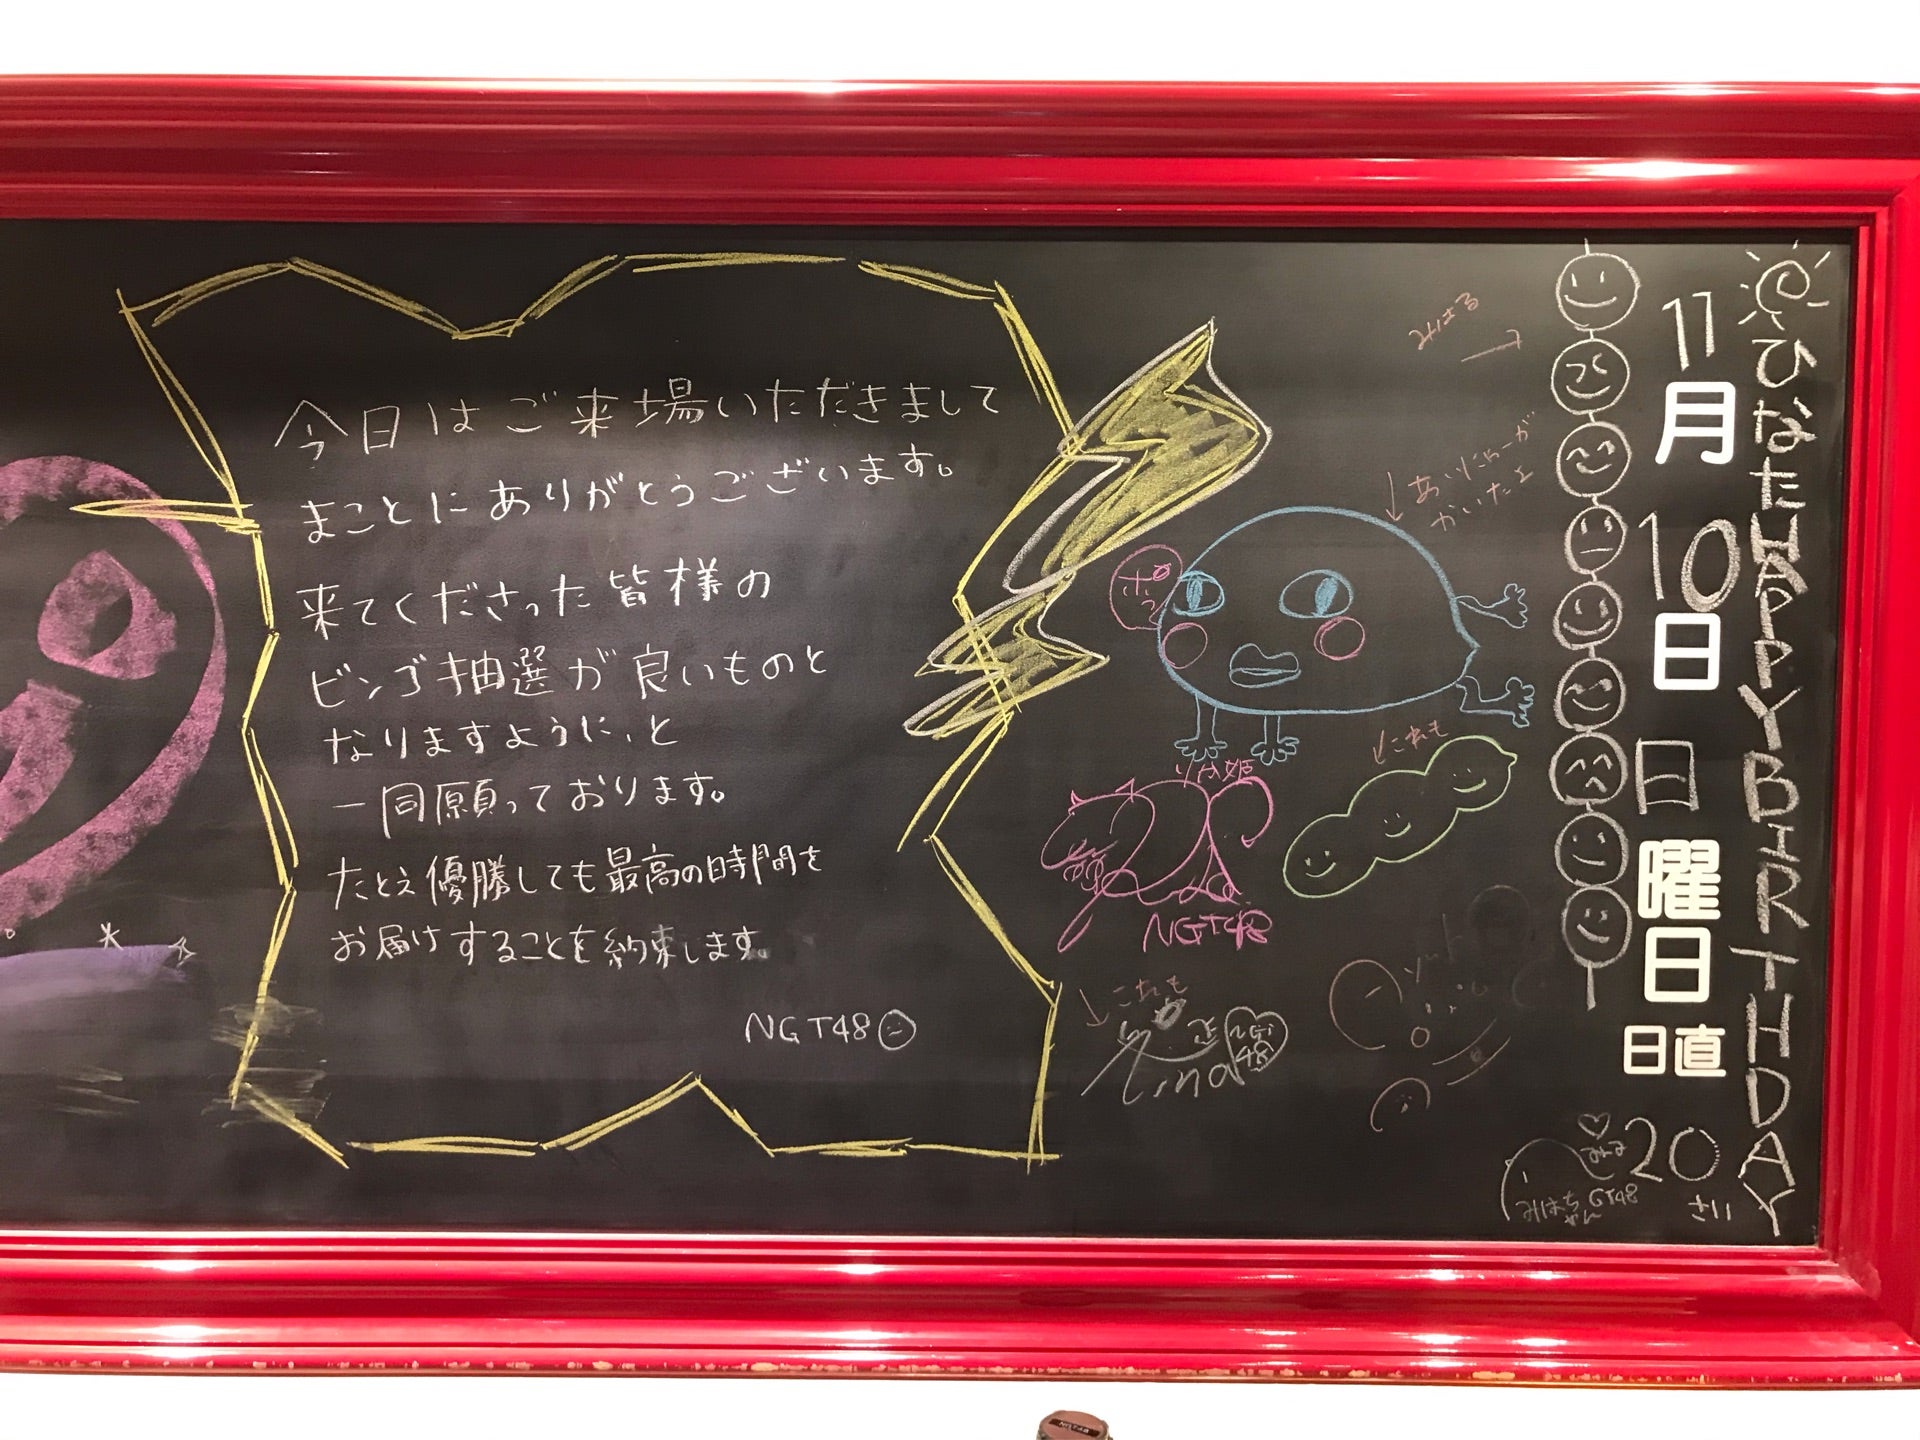 今日はご来場いただきまして
まことにありがとうございます。
来てくださった皆様の
ビンゴ抽選が良いものと
なりますように、と
一同願っております。
たとえ優勝しても最高の時間を
お届けすることを約束します。
NGT48
みはる
あいにゃーが
かいたよ
ぽっ
りか姫
NGT48
これも
これも
11月10日日曜日
日直
ひなたHAPPYBIRTHDAY
20
さい
みはち
ゃん
GT48